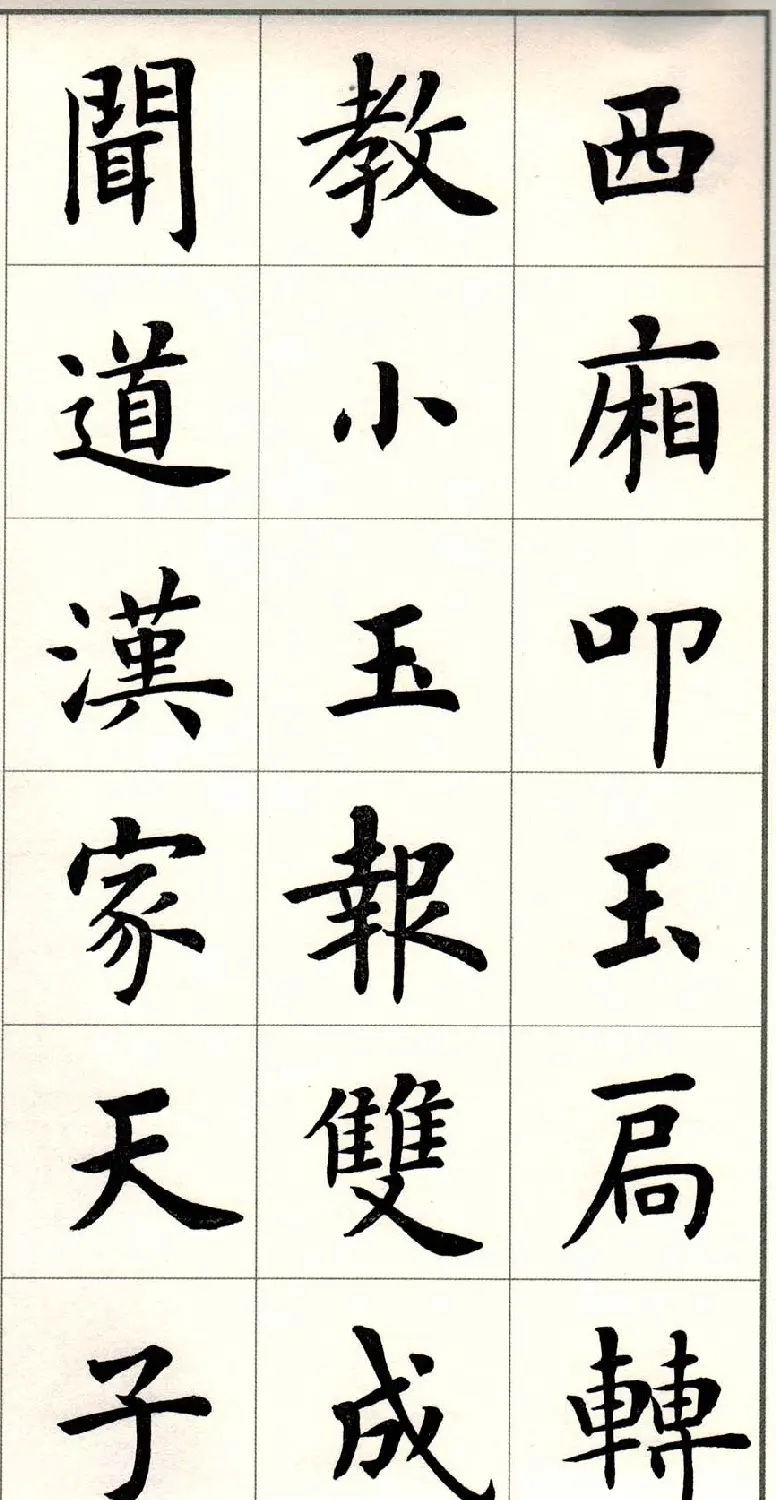 西廂叩玉扃轉
教小玉報雙成
聞道漢家天子